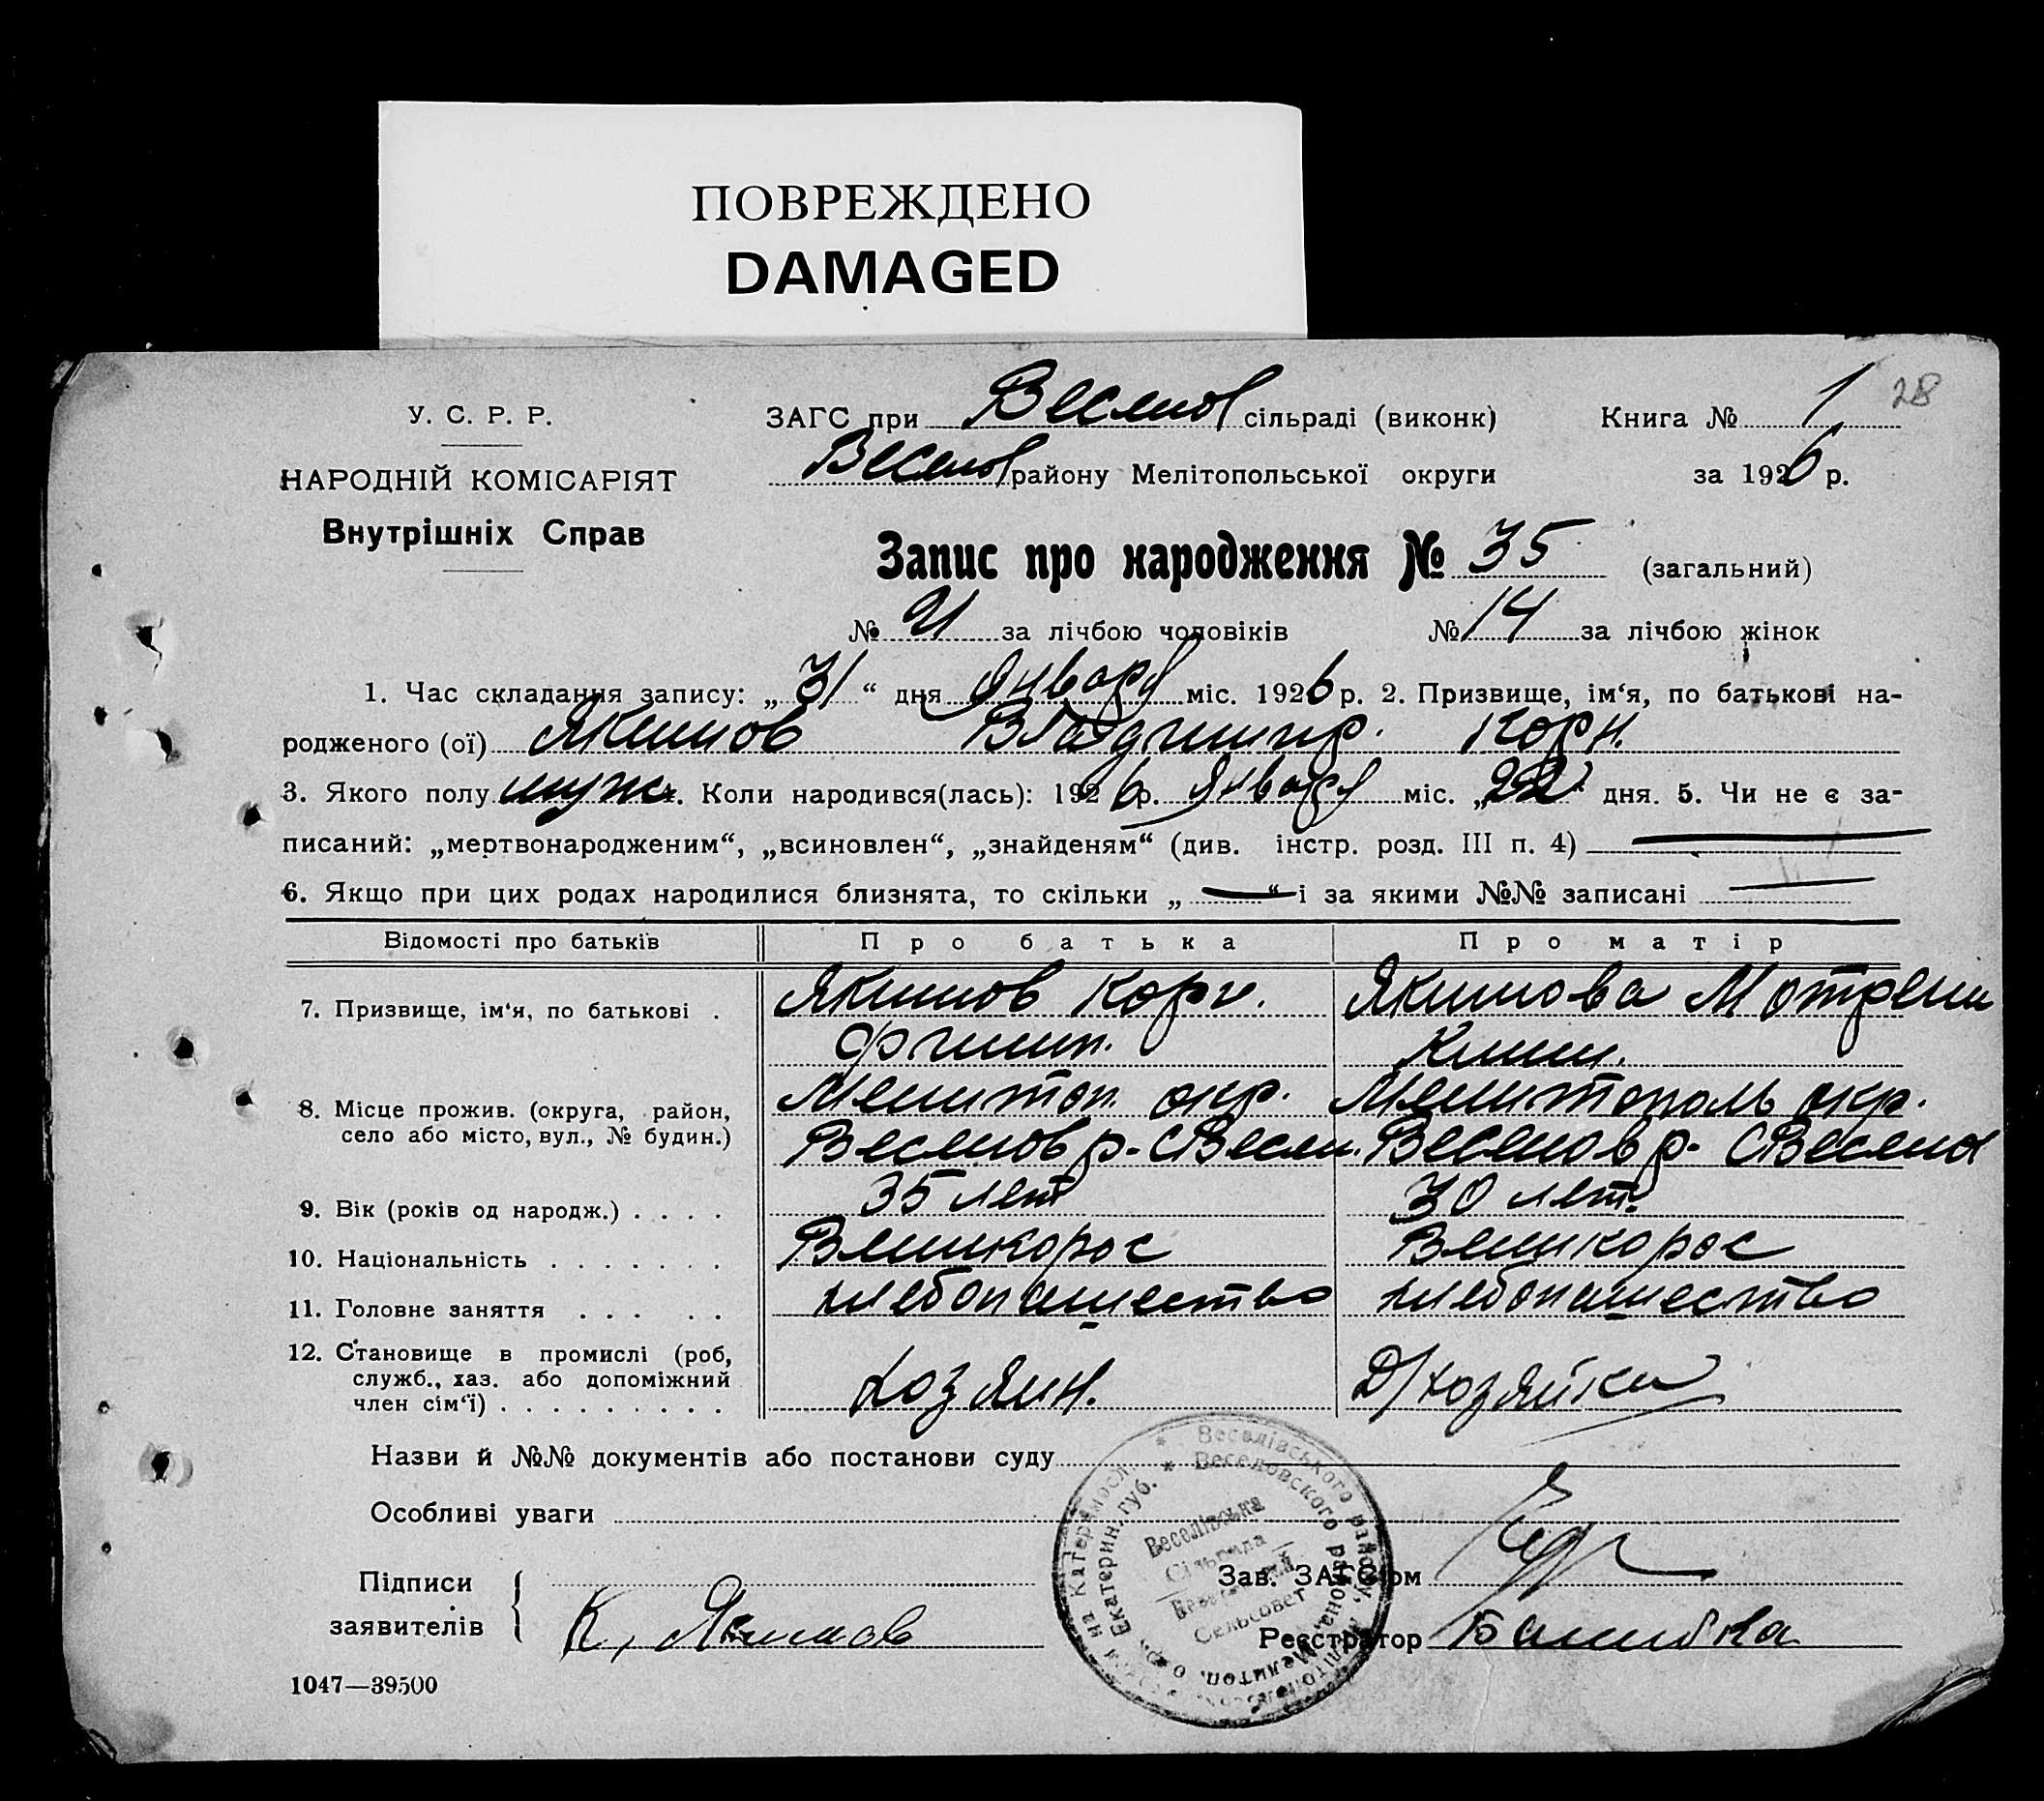 ПОВРЕЖДЕНО
DAMAGED
28
У. С. Р. Р.
НАРОДНІЙ КОМІСАРІЯТ
Внутрішніх Справ
ЗАГС при Веселов сільраді (виконк)
Книга № 1
Веселов району Мелітопольської округи
за 1926 р.
Запис про народження № 35 (загальний)
№ 21 за лічбою чоловіків № 14 за лічбою жінок
1. Час складання запису: „31“ дня Января міс. 1926 р. 2. Призвище, ім‘я, по батькові на-
родженого (ої) Якимов Владимир. Корн.
3. Якого полу муж. Коли народився(лась): 1926 р. Января міс. „22“ дня. 5. Чи не є за-
писаний: „мертвонародженим“, „всиновлен“, „знайденям“ (див. інстр. розд. III п. 4)
6. Якщо при цих родах народилися близнята, то скільки „—“ і за якими №№ записані
Відомості про батьків Про батька Про матір
7. Призвище, ім‘я, по батькові . Якимов Корн. Якимова Мотрена
Филип. Клим.
8. Місце прожив. (округа, район, Мелитоп. окр. Мелитополь окр.
село або місто, вул., № будин.) Веселов р. С Весел. Веселов р. С Весела
9. Вік (років од народж.) . . . . 35 лет 30 лет.
10. Національність . . . . . . . Великорос Великорос
11. Головне заняття . . . . . хлебопашество хлебопашество
12. Становище в промислі (роб,
служб., хаз. або допоміжний хозяин. Д/хозяйка
член сім‘ї) . . . . . . . . .
Назви й №№ документів або постанови суду
Особливі уваги
Підписи
заявителів К. Якимов
Зав. ЗАГС‘ом
Реєстратор
Веселівського району, Мелітопольської округи на Катериносл.
Веселовского района, Мелитоп. окр. Екатерин. губ.
Веселівська
Сільрада
Веселовский
Сельсовет
1047—39500